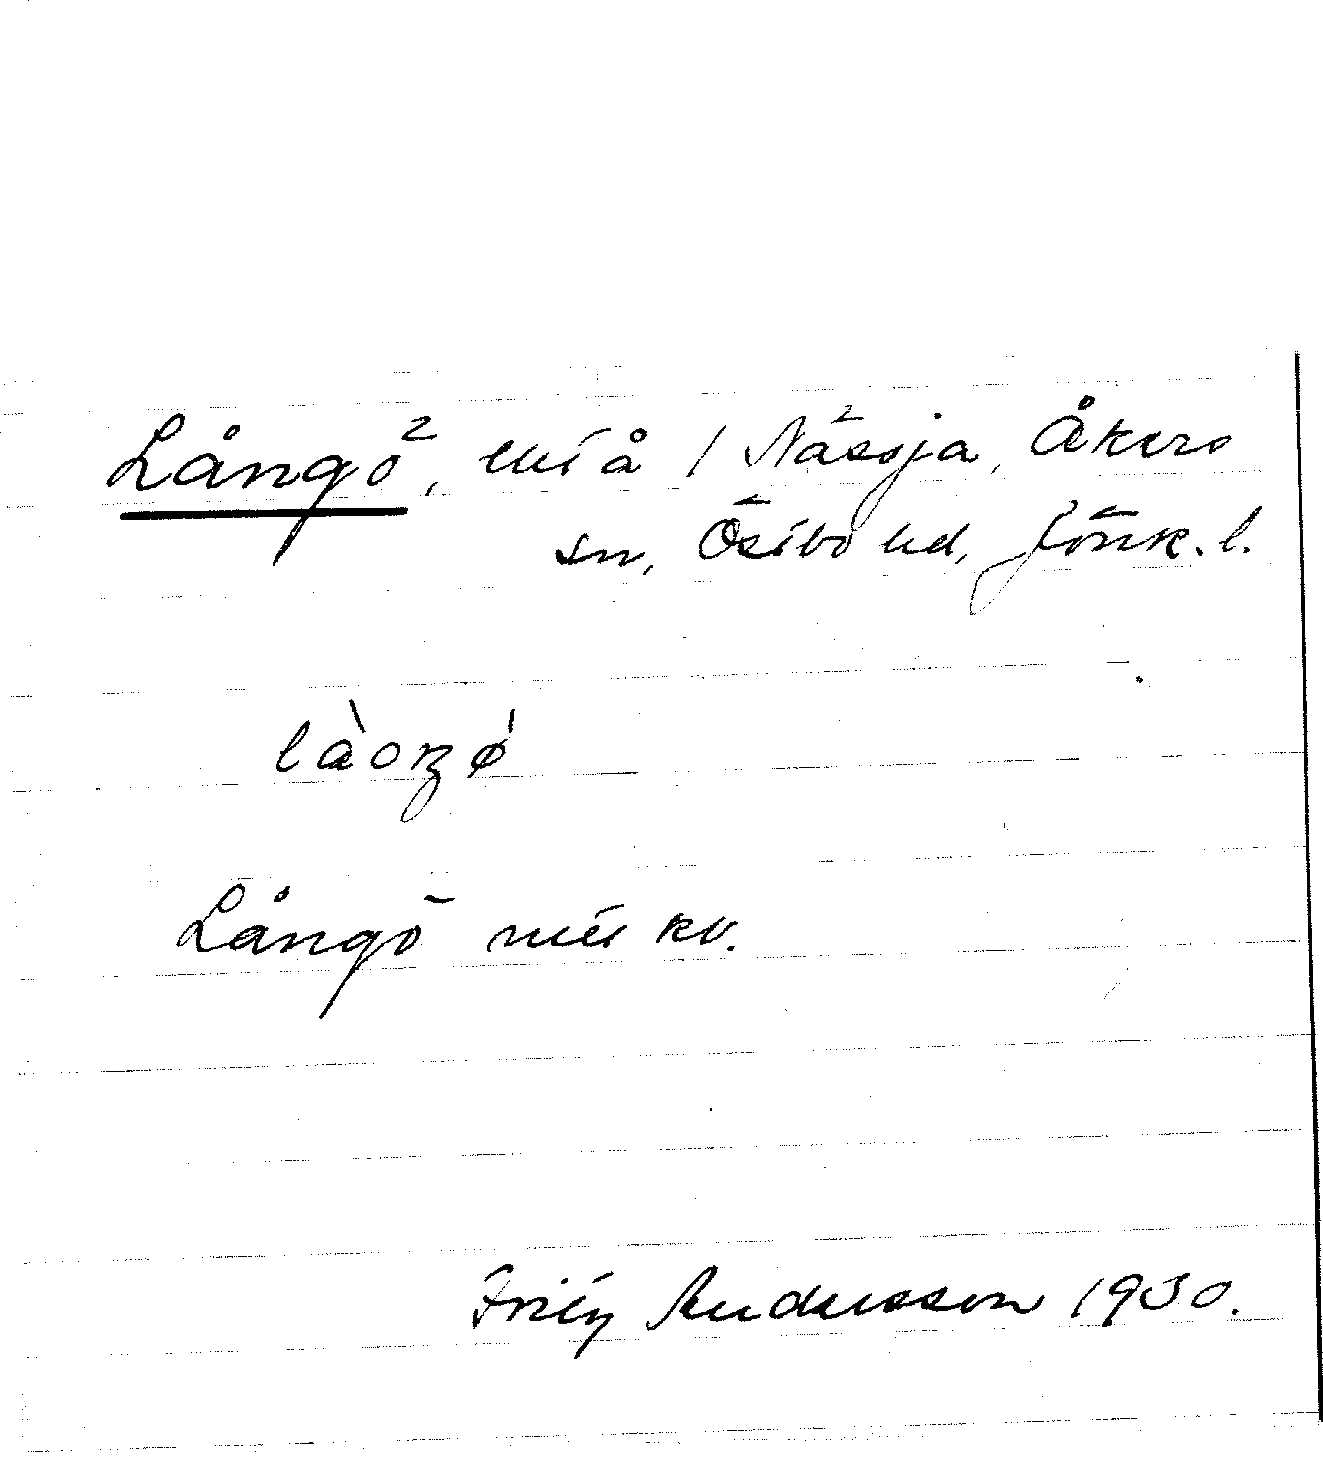 Långö, å / Nässja, Åkers
sn, Östbo hd, Jönk. l.
làoŋø
Långö kv.
Fritz Andersson 1930.